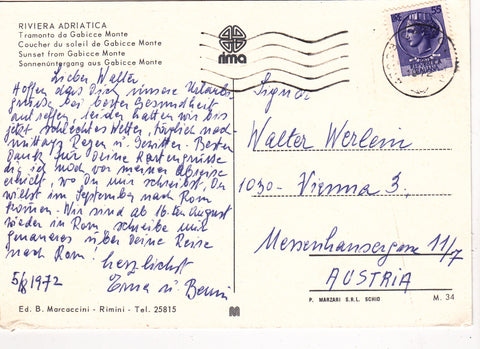 RIVIERA ADRIATICA
Tramonto da Gabicce Monte
Coucher du soleil de Gabicce Monte
Sunset from Gabicce Monte
Sonnenüntergang aus Gabicce Monte
rima
55
Lieber Walter
Hoffen das Dich unsere Urlaubs
grüsse bei bester Gesundheit
antreffen, leider hatten wir bis
jetzt schlechtes Wetter, täglich nach
mittags Regen u. Gewitter. Besten
Dank für Deine Kartengrüsse
die ich noch vor meiner Abreise
erhielt, wo Du mir schreibst, Du
willst im September nach Rom
kommen. Wir sind ab 16-ten August
wieder in Rom, schreibe mir
genaueres über Deine Reise
nach Rom!
herzlichst
5/8 1972 Erna u. Benni
Signor
Walter Werlein
1030 - Vienna 3.
Messenhausergasse 11/7
AUSTRIA
Ed. B. Marcaccini - Rimini - Tel. 25815
M
P. MARZARI S.R.L. SCHIO
M. 34